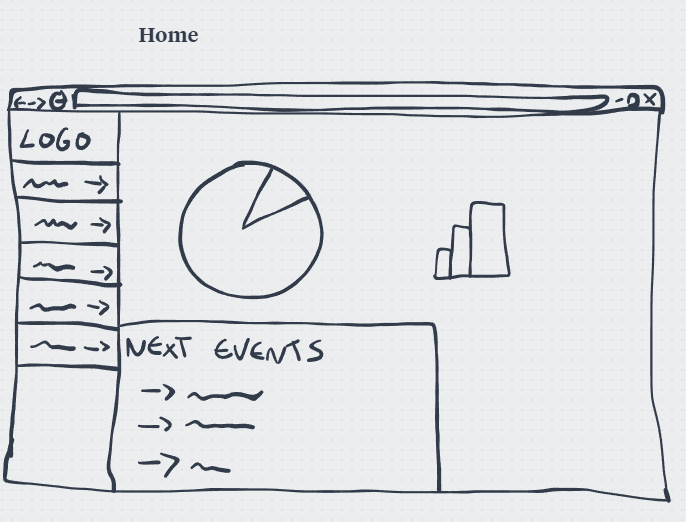 Home
LOGO
NEXT EVENTS